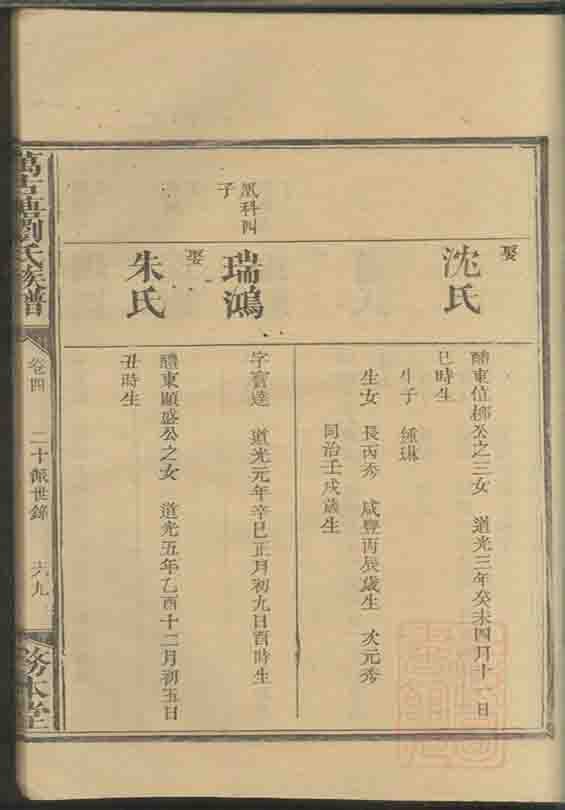 娶
沈氏
醴東位柳公之三女 道光三年癸未四月十一日
巳時生
生子 鍾琳
生女 長丙秀 咸豐丙辰歲生 次元秀
同治壬戌歲生
凰科四
子
瑞鴻
字寶達 道光元年辛巳正月初九日酉時生
娶
朱氏
醴東顯盛公之女 道光五年乙酉十二月初五日
丑時生
萬古塘劉氏族譜
卷四
二十派世錄
六九
務本堂